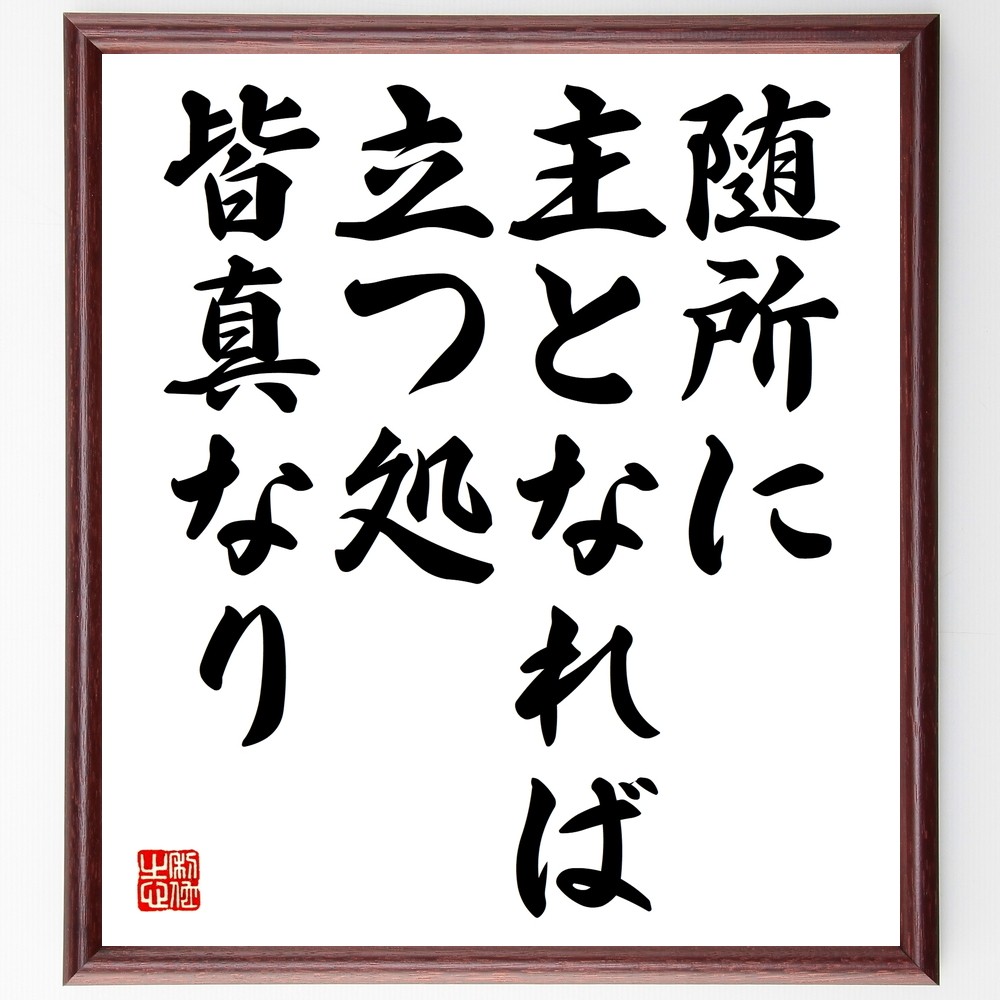 随所に
主となれば
立つ処
皆真なり